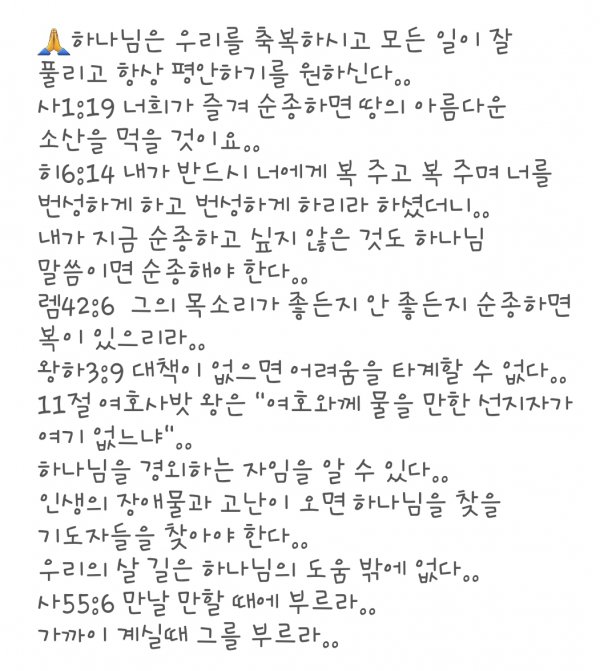 🙏하나님은 우리를 축복하시고 모든 일이 잘
풀리고 항상 평안하기를 원하신다。。
사1:19 너희가 즐겨 순종하면 땅의 아름다운
소산을 먹을 것이요。。
히6:14 내가 반드시 너에게 복 주고 복 주며 너를
번성하게 하고 번성하게 하리라 하셨더니。。
내가 지금 순종하고 싶지 않은 것도 하나님
말씀이면 순종해야 한다。。
렘42:6  그의 목소리가 좋든지 안 좋든지 순종하면
복이 있으리라。。
왕하3:9 대책이 없으면 어려움을 타계할 수 없다。。
11절 여호사밧 왕은 "여호와께 물을 만한 선지자가
여기 없느냐"。。
하나님을 경외하는 자임을 알 수 있다。。
인생의 장애물과 고난이 오면 하나님을 찾을
기도자들을 찾아야 한다。。
우리의 살 길은 하나님의 도움 밖에 없다。。
사55:6 만날 만할 때에 부르라。。
가까이 계실때 그를 부르라。。